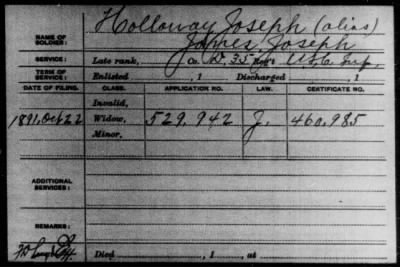 NAME OF SOLDIER: Holloway Joseph (alias)
James, Joseph
SERVICE: Late rank, Co. D, 35 Reg't U.S.C. Inf.,
TERM OF SERVICE: Enlisted , 1 Discharged , 1
DATE OF FILING. CLASS. APPLICATION NO. LAW. CERTIFICATE NO.
Invalid,
1891, Oct 22 Widow, 529,942 J. 460,985
Minor,
ADDITIONAL SERVICES:
REMARKS:
Died , 1 , at